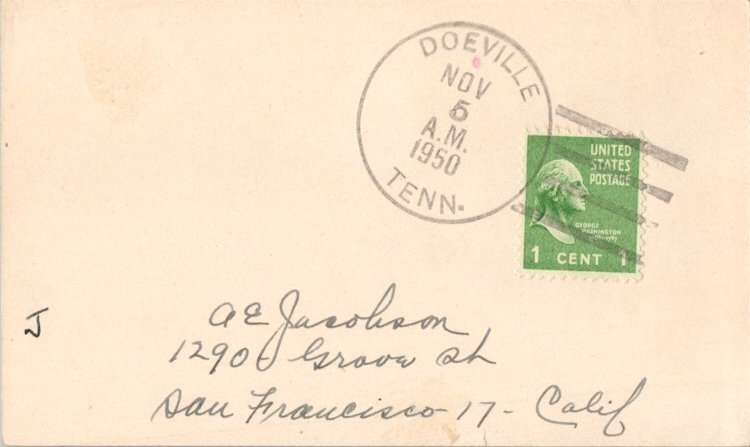 DOEVILLE
NOV
5
A.M.
1950
TENN.
UNITED
STATES
POSTAGE
GEORGE
WASHINGTON
1 CENT 1
J
A E Jacobson
1290 Grove St
San Francisco - 17 - Calif